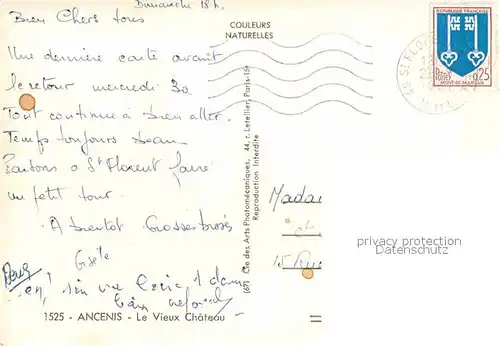 Dimanche 18h,
Bien Chers tous
Une dernière carte avant
le retour mercredi 30.
Tout continue à bien aller.
Temps toujours beau
Partons à St Florent faire
un petit tour.
A bientôt Grosses bises
Gisèle
1525 - ANCENIS - Le Vieux Château
COULEURS
NATURELLES
(67) Cie des Arts Photomécaniques, 44, r. Letellier, Paris-15e
Reproduction Interdite
REPUBLIQUE FRANÇAISE
Postes 0,25
MONT-DE-MARSAN
49 ST FLO
Madam
et
15 Rue
privacy protection
Datenschutz